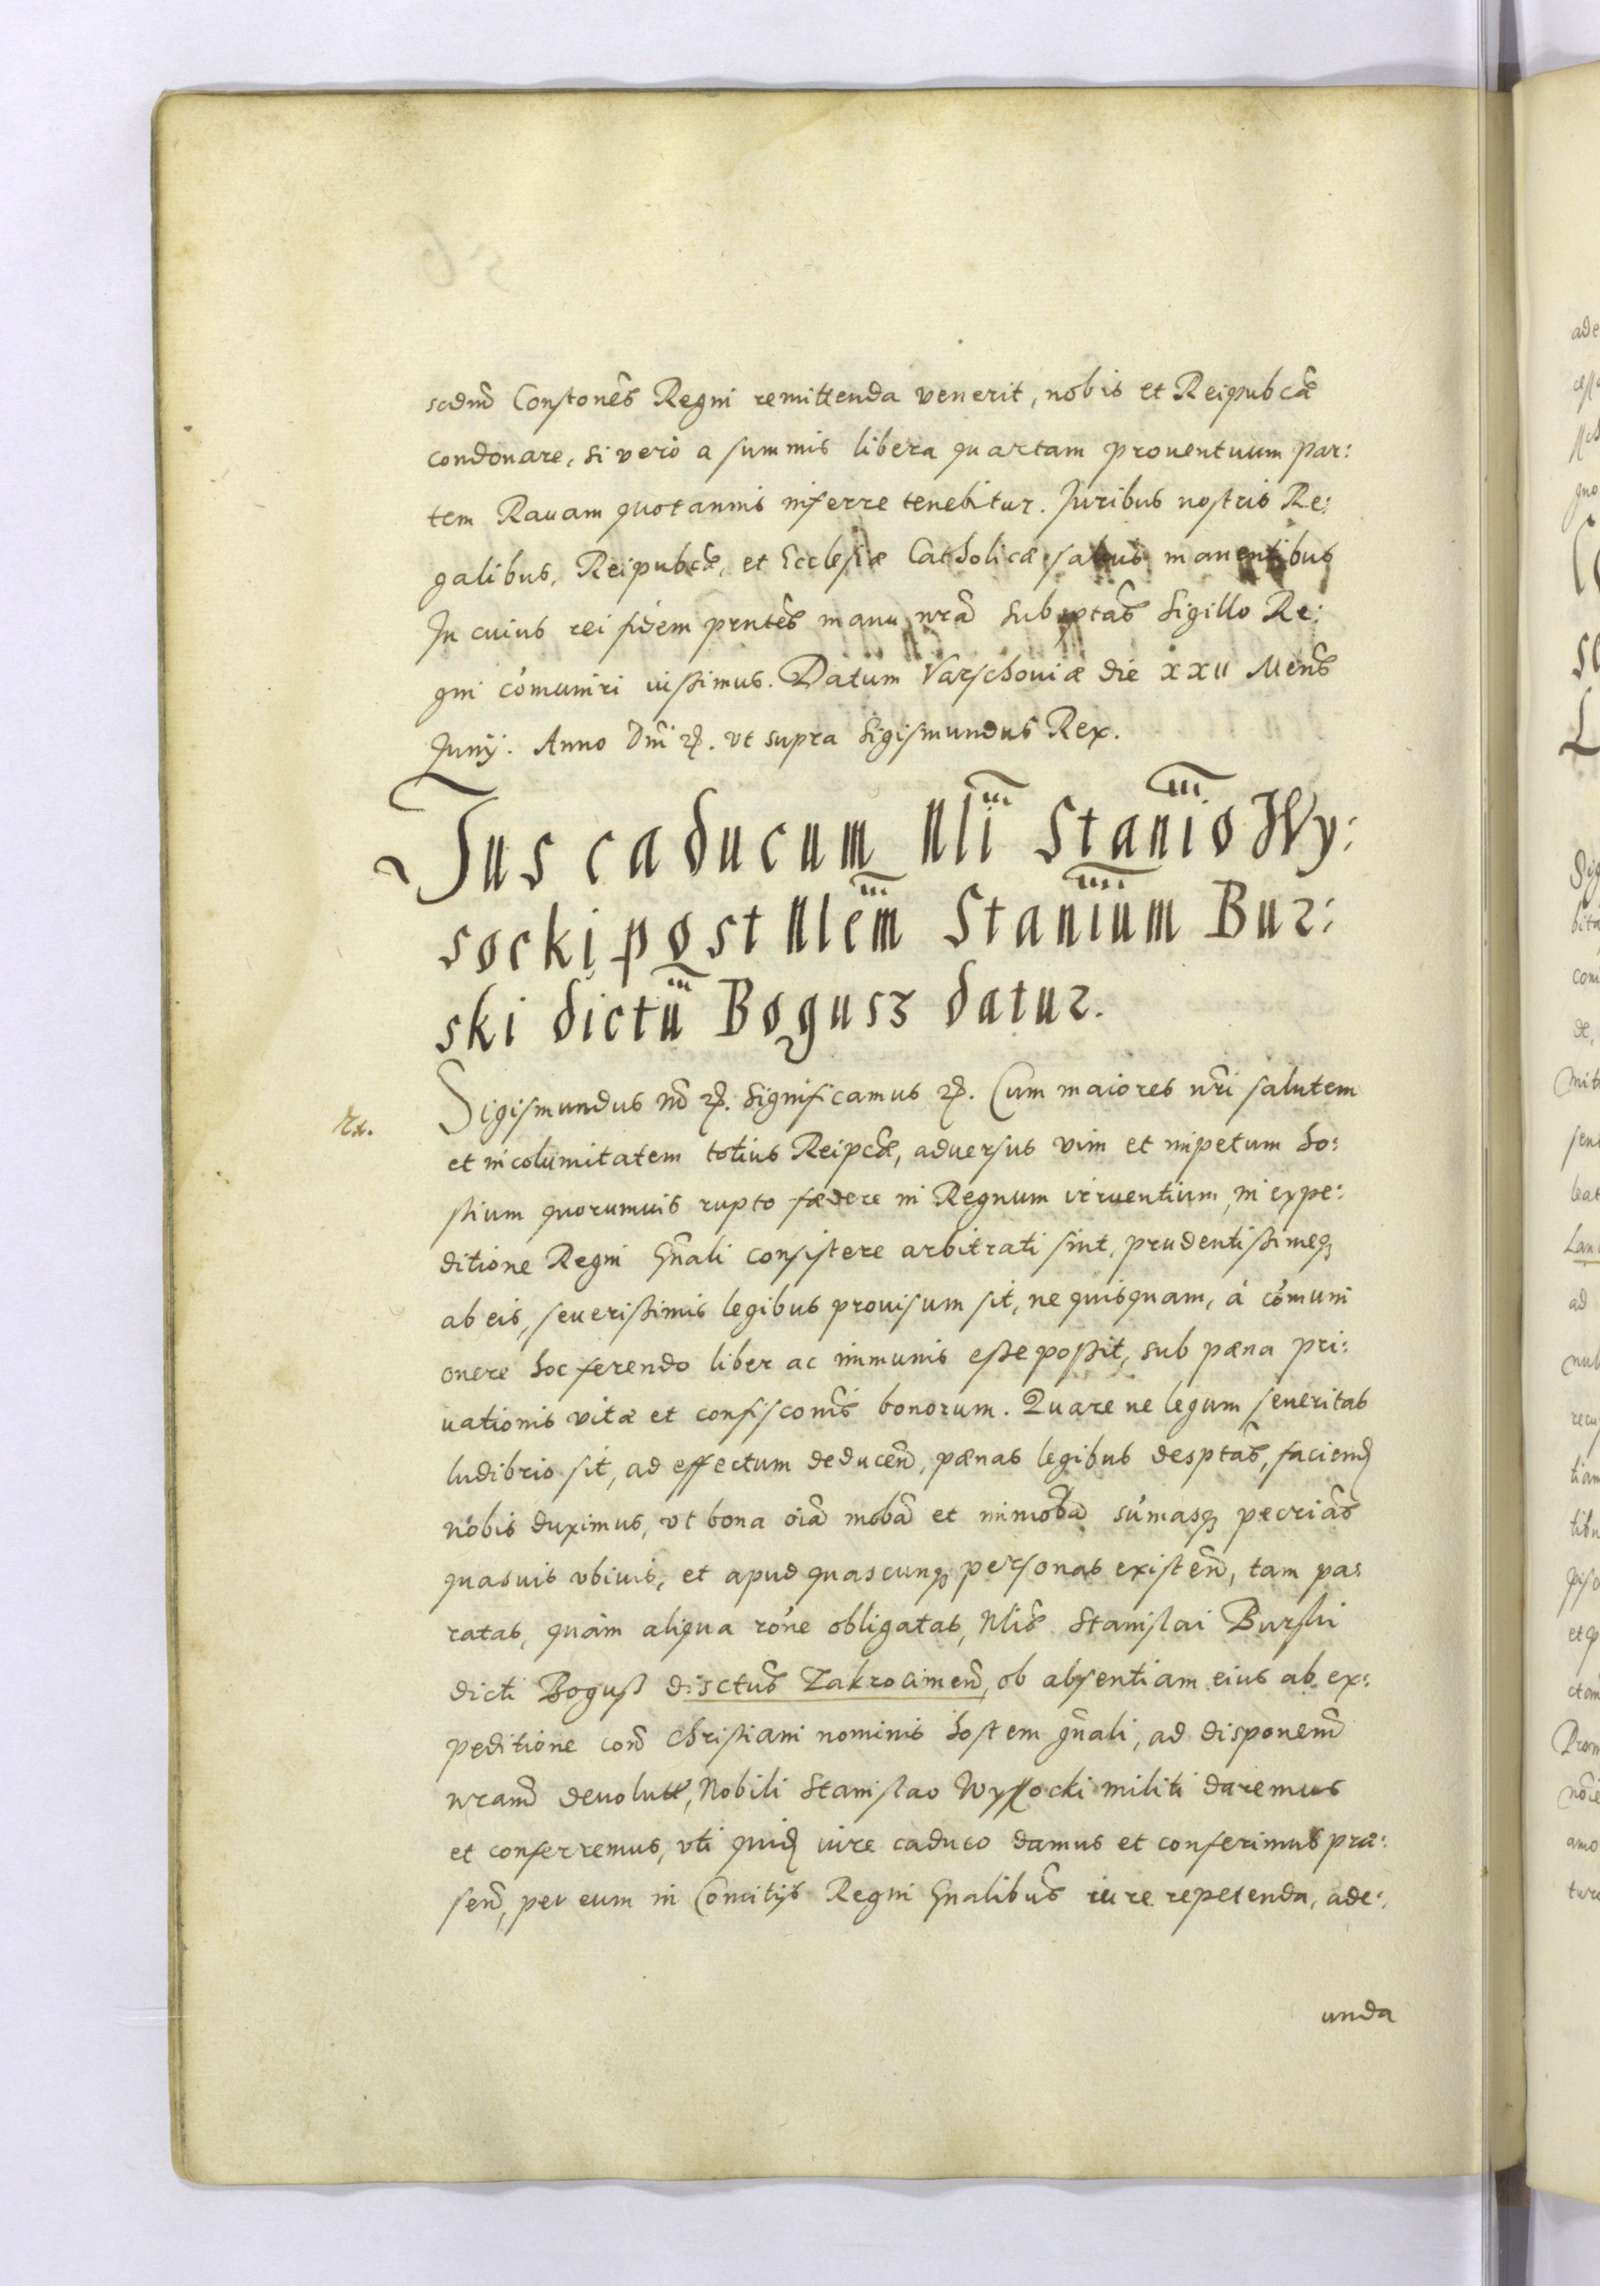 scdm̃ Constoneš Regni remittenda venerit, nobis et Reipubcæ̃
condonare, si vero a summis libera quartam prouentuum par:
tem Rauam quotannis inferre tenebitur. Juribus nostris Re:
galibus, Reipubcæ̃, et Ecclesiæ Catholicæ saluis manentibus
In cuius rei fidem prnteš manu nrã subsptaš Sigillo Re:
gni cõmuniri iussimus. Datum Varschouiæ die XXII Menš
Junij. Anno Dnĩ ꝛc. vt supra Sigismundus Rex.
Jus caducum Nlĩ Stanĩo Wy:
socki post Nlem̃ Stanĩum Bur:
ski dictũ Bogusz datur.
Sigismundus ꝛc. Significamus ꝛc. Cum maiores nrĩ salutem
et incolumitatem totius Reipcæ̃, aduersus vim et impetum ho:
stium quorumuis rupto fædere in Regnum irruentium, in expe:
ditione Regni Gñali consistere arbitrati sint, prudentissimeqꝫ
ab eis, seuerissimis legibus prouisum sit, ne quisquam, à cõmuni
onere hoc ferendo liber ac immunis esse possit, sub pæna pri:
uationis vitæ et confisconĩs bonorum. Quare ne legum seueritas
ludibrio sit, ad effectum deducen̄, pænas legibus desptaš, faciend̄
nobis duximus, vt bona oĩa mobã et immobã sum̃asqꝫ pecriãs
quasuis vbiuis, et apud quascunqꝫ personas existen̄, tam pa:
ratas, quàm aliqua rõne obligatas, Nliš Stanislai Burski
dicti Boguß disctuš Zakrocimen̄, ob absentiam eius ab ex:
peditione con̄ Christiani nominis hostem gñali, ad disponem̄
nram̄ deuolutæ, Nobili Stanislao Wyssocki militi daremus
et conferremus, vti quid̄ iure caduco damus et conferimus præ:
sen̄, per eum in Comitijs Regni Gñalibuš iure repetenda, ade:
unda